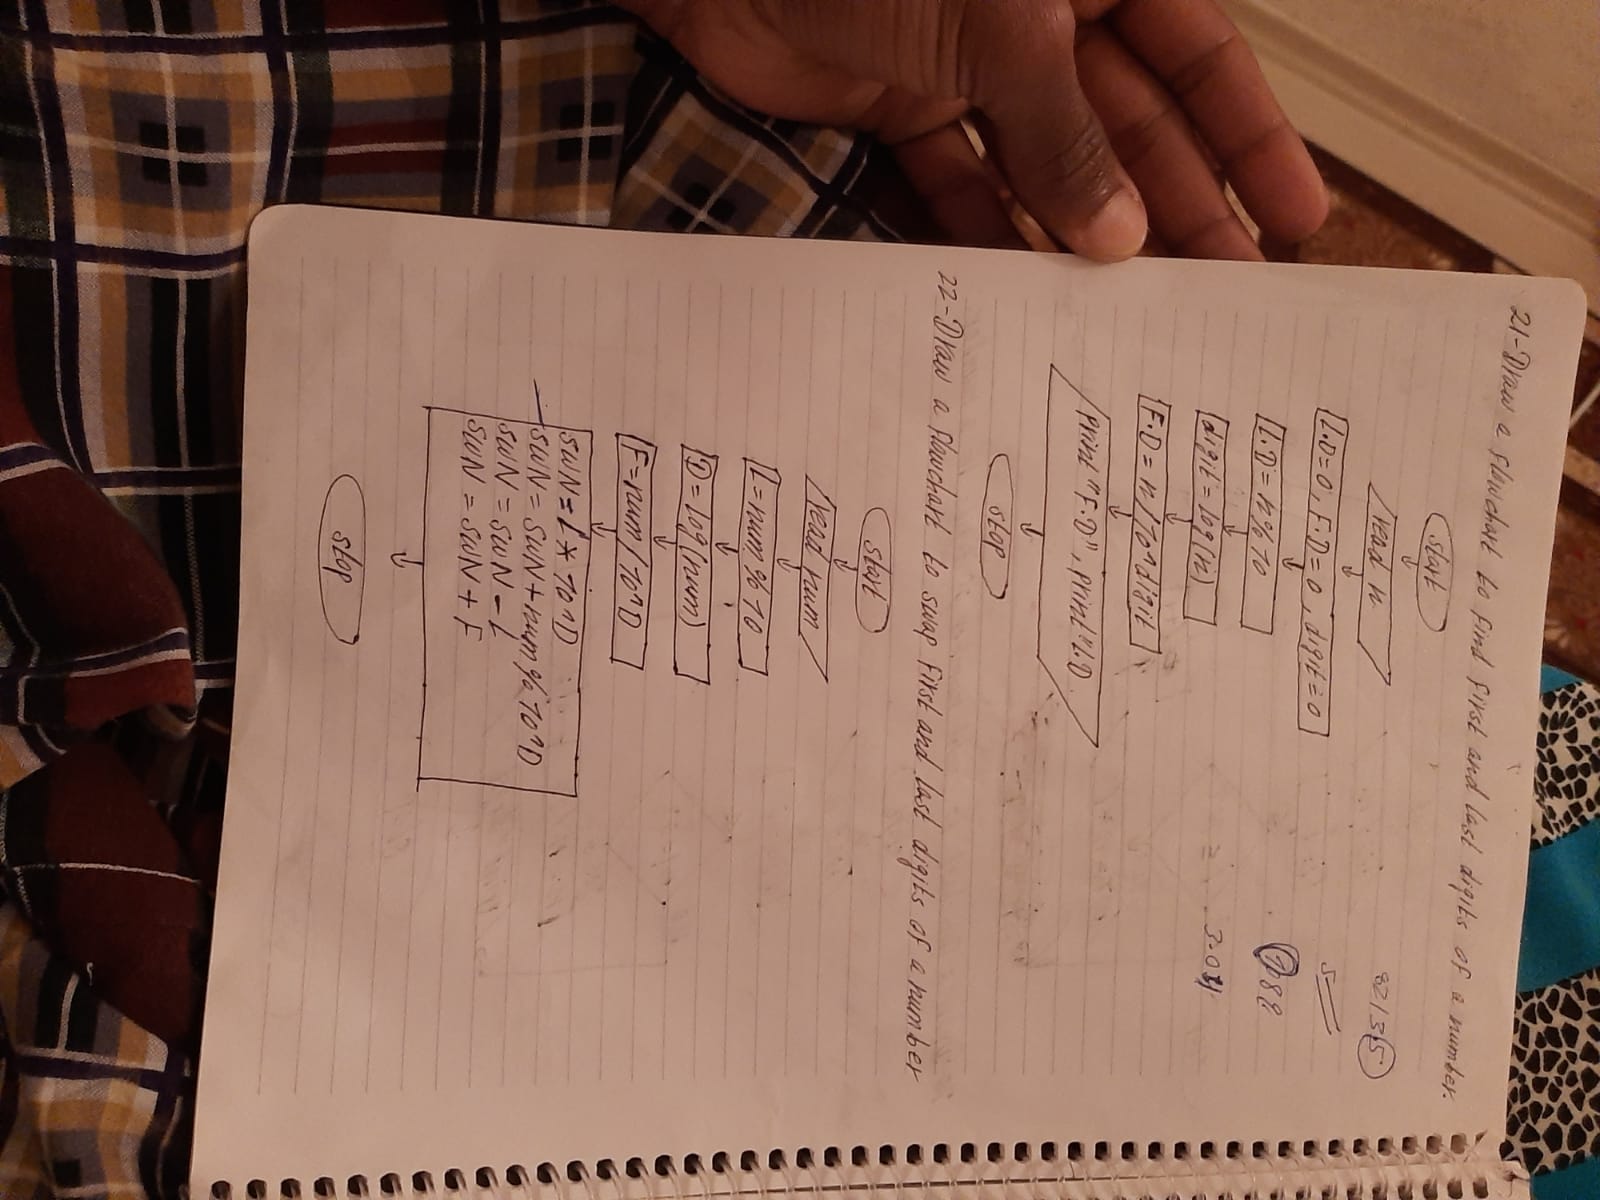 21-Draw a flowchart to find first and last digits of a number.
start
read n
82135
L.D=0, F.D=0, digit=0
5
L.D=n%10
digit=log(n)
3.04
F.D=n/10^digit
print "F.D", print "L.D
stop
22-Draw a flowchart to swap first and last digits of a number
start
read num
L=num%10
D=log(num)
F=num/10^D
swN=L*10^D
swN=swN+num%10^D
swN=swN-L
swN=swN+F
stop